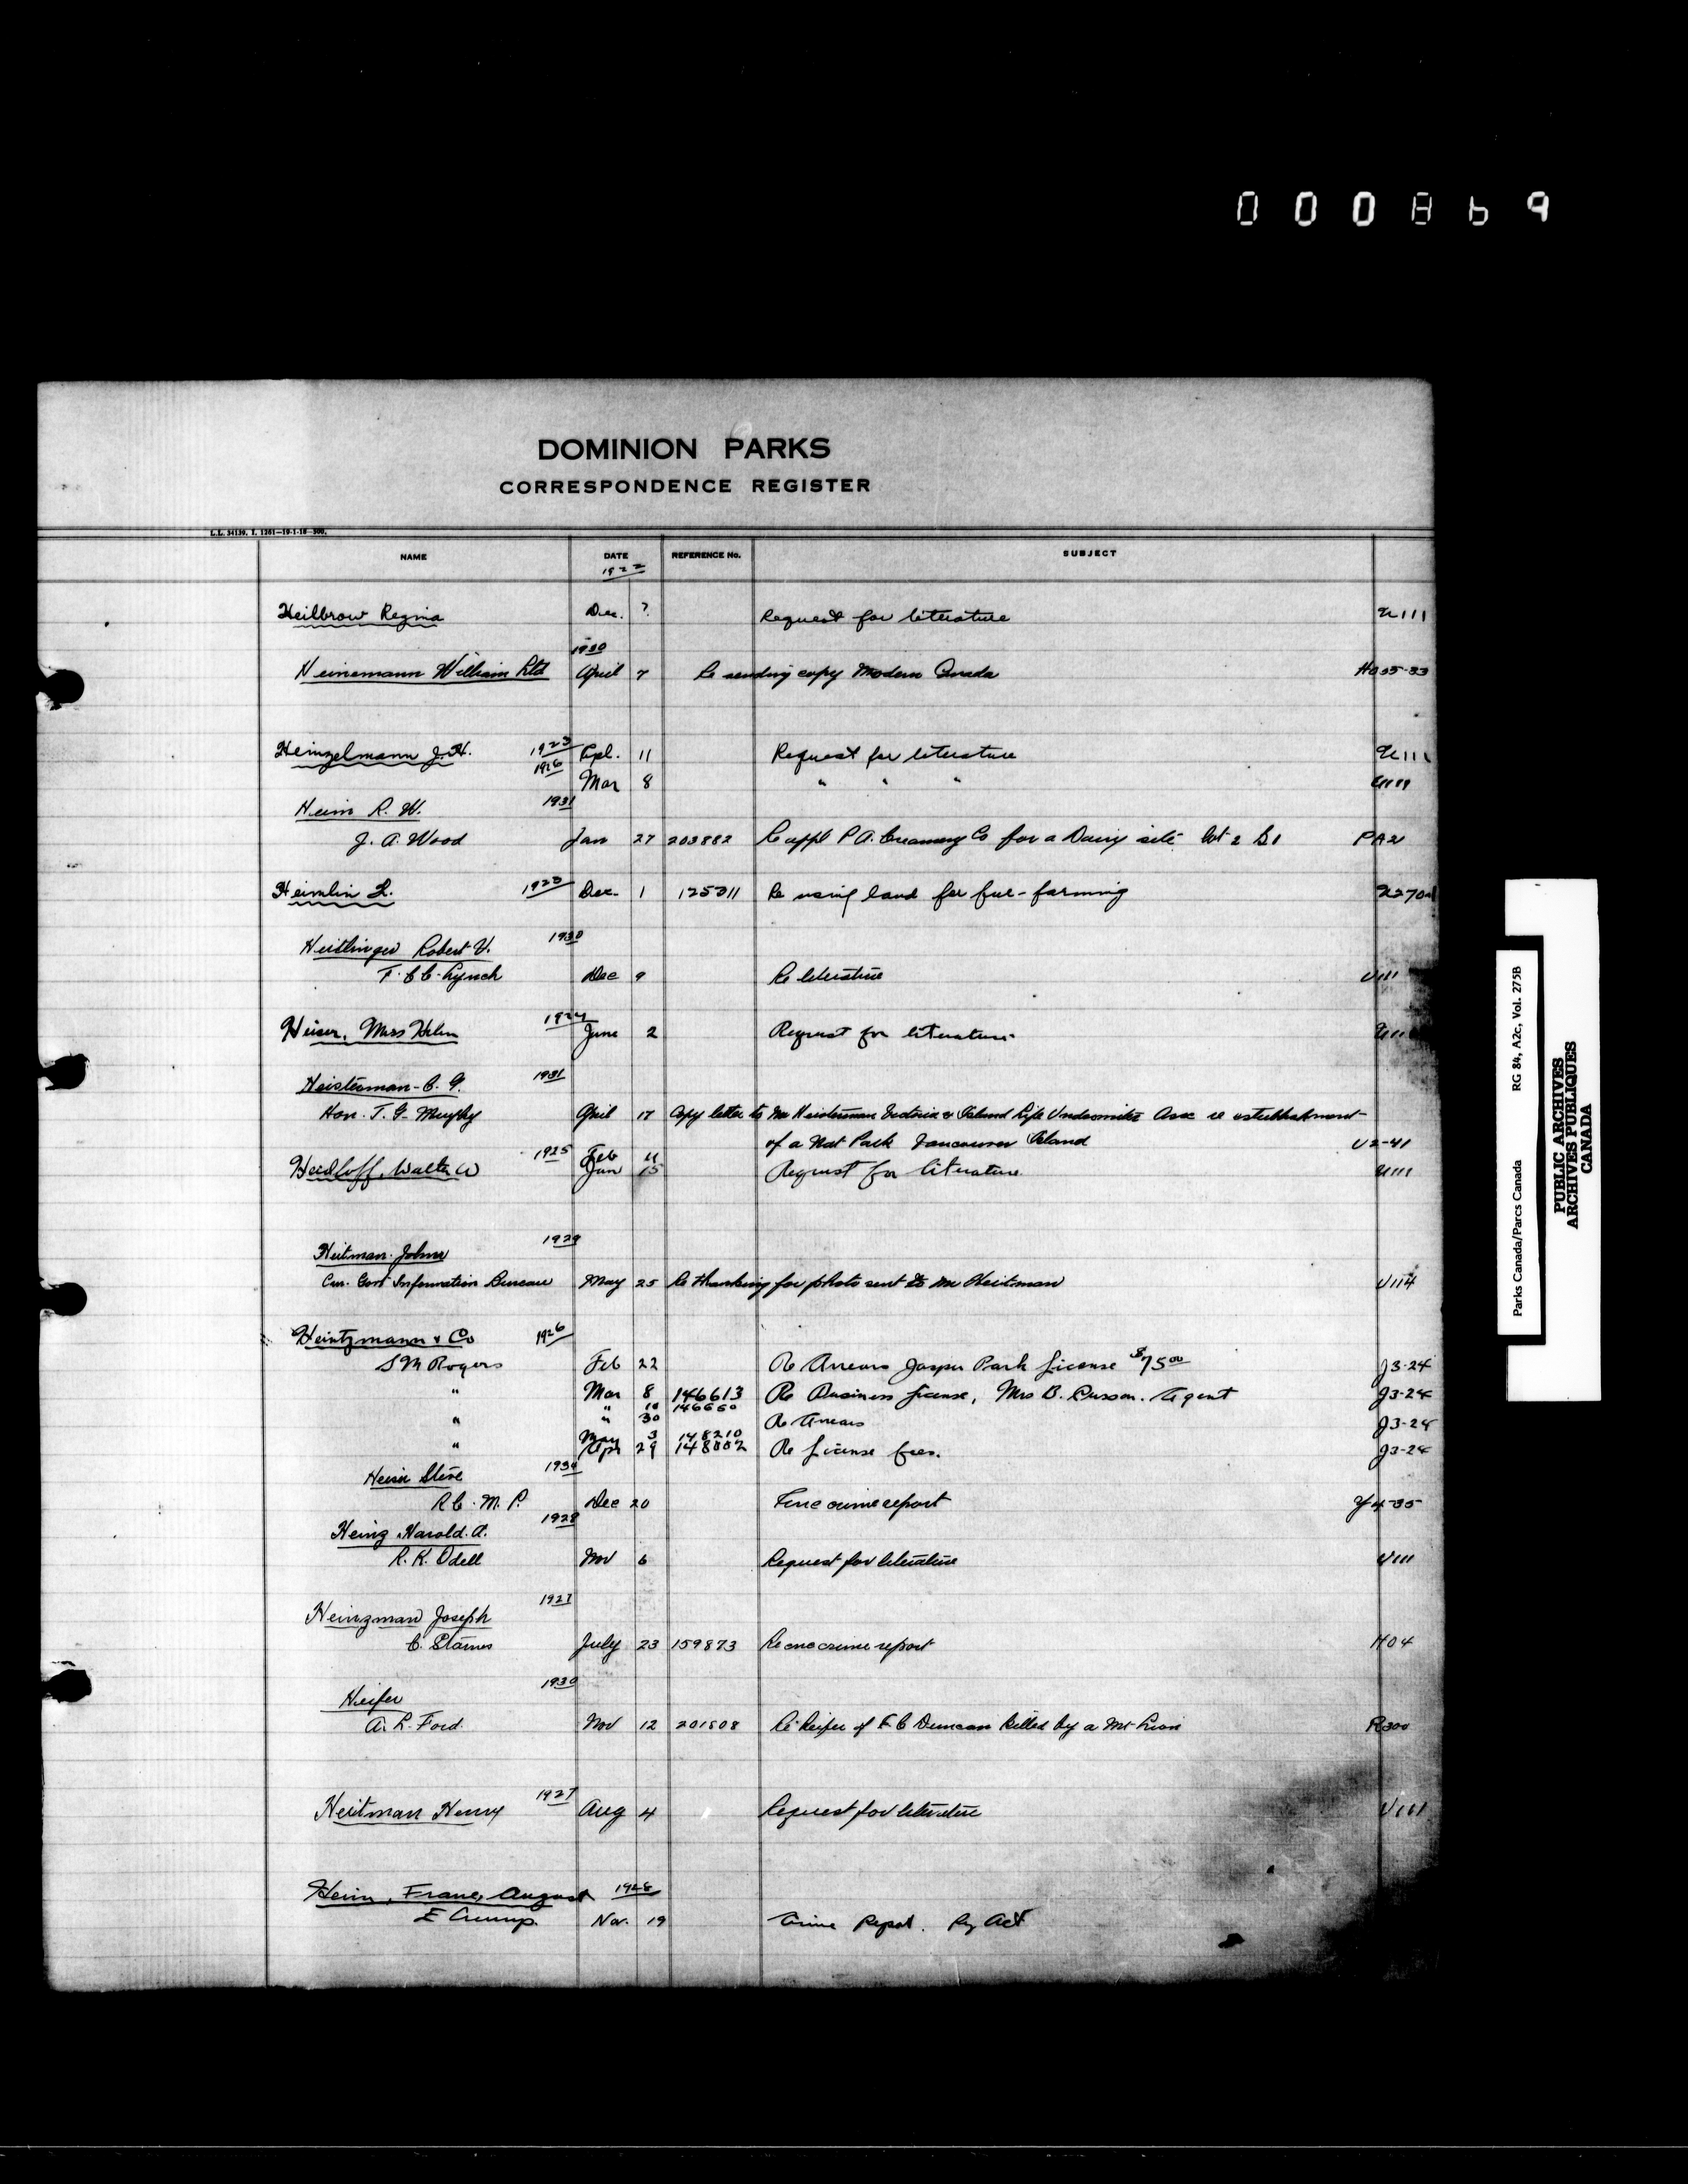 000869
DOMINION PARKS
CORRESPONDENCE REGISTER
L.L. 34139. I. 1261—19-1-18—300.
NAME DATE REFERENCE No. SUBJECT
1922
Heilbrow Regina Dec. 7 Request for literature U111
1930
Heinemann William Ltd April 7 Re sending copy Modern Canada
Heinzelmann J.H. 1923 Apl. 11 Request for literature U111
1926 Mar 8 " " " U111
Heim R. W. 1931
J. A. Wood Jan 27 203882 Re appl P A. Creamery Co for a Dairy site Lot 2 B1 PA2
Heimlin L. 1923 Dec. 1 125311 Re using land for fur-farming U270
Heitlinger Robert V. 1930
F. C. C. Lynch Dec 9 Re literature U111
Heiser, Miss Helen 1924 June 2 Request for literature U111
Heisterman - C. G. 1931
Hon. T. G. Murphy April 17 Copy letter to Mr Heisterman Victoria & Island Life Underwriters Assc re establishment
of a Nat Park Vancouver Island U2-41
1925 Feb 11
Heidloff, Walter W Jan 15 Request for literature U111
Heitman John 1929
Can. Govt Information Bureau May 25 Re thanking for photo sent to Mr Heitman U114
Heintzmann & Co 1926
S M Rogers Feb 22 Re Arrears Jasper Park License $75.00 J3-24
" Mar 8 146613 Re Business License, Mrs B. Cusson. Agent J3-24
" 10 146660
" " 30 Re Arrears J3-24
May 3 148210
" Apr 29 148002 Re License fees. J3-24
Heisi Steve 1934
R. C. M. P. Dec 20 Fire crime report Y4-35
Heinz Harold. A. 1928
R. K. Odell Nov 6 Request for literature U111
Heinzman Joseph 1927
C. Starnes July 23 159873 Re one crime report H04
Heifer 1930
A. L. Ford Nov 12 201508 Re heifer of F. C Duncan killed by a Mt Lion R300
Heitman Henry 1927 Aug 4 Request for literature U111
Heim, Franc, August 1928
E Crump. Nov. 19 Crime Report. Ry Act
Parks Canada/Parcs Canada RG 84, A2c, Vol. 275B
PUBLIC ARCHIVES
ARCHIVES PUBLIQUES
CANADA